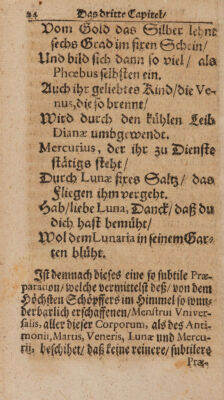 24 Das dritte Capitel/
Vom Gold das Silber lehnt
sechs Grad im fixen Schein/
Und bild sich dann so viel / als
Phœbus selbsten ein.
Auch ihr geliebtes Kind/die Ve-
nus,die so brennt/
Wird durch den kühlen Leib
Dianæ umbgewendt.
Mercurius, der ihr zu Dienste
stätigs steht/
Durch Lunæ fixes Saltz / das
Fliegen ihm vergeht.
Hab/liebe Luna, Danck/daß du
dich hast bemüht/
Wol dem Lunaria in seinem Gar-
ten blüht.
Ist demnach dieses eine so subtile Præ-
paration/welche vermittelst deß/von dem
Höchsten Schöpffers im Himmel so wun-
derbarlich erschaffenen/Menstrui Vniver-
salis, aller dieser Corporum, als des Anti-
monii, Martis, Veneris, Lunæ und Mercu-
rij, beschihet/daß keine reinere/ subtilers
Præ-